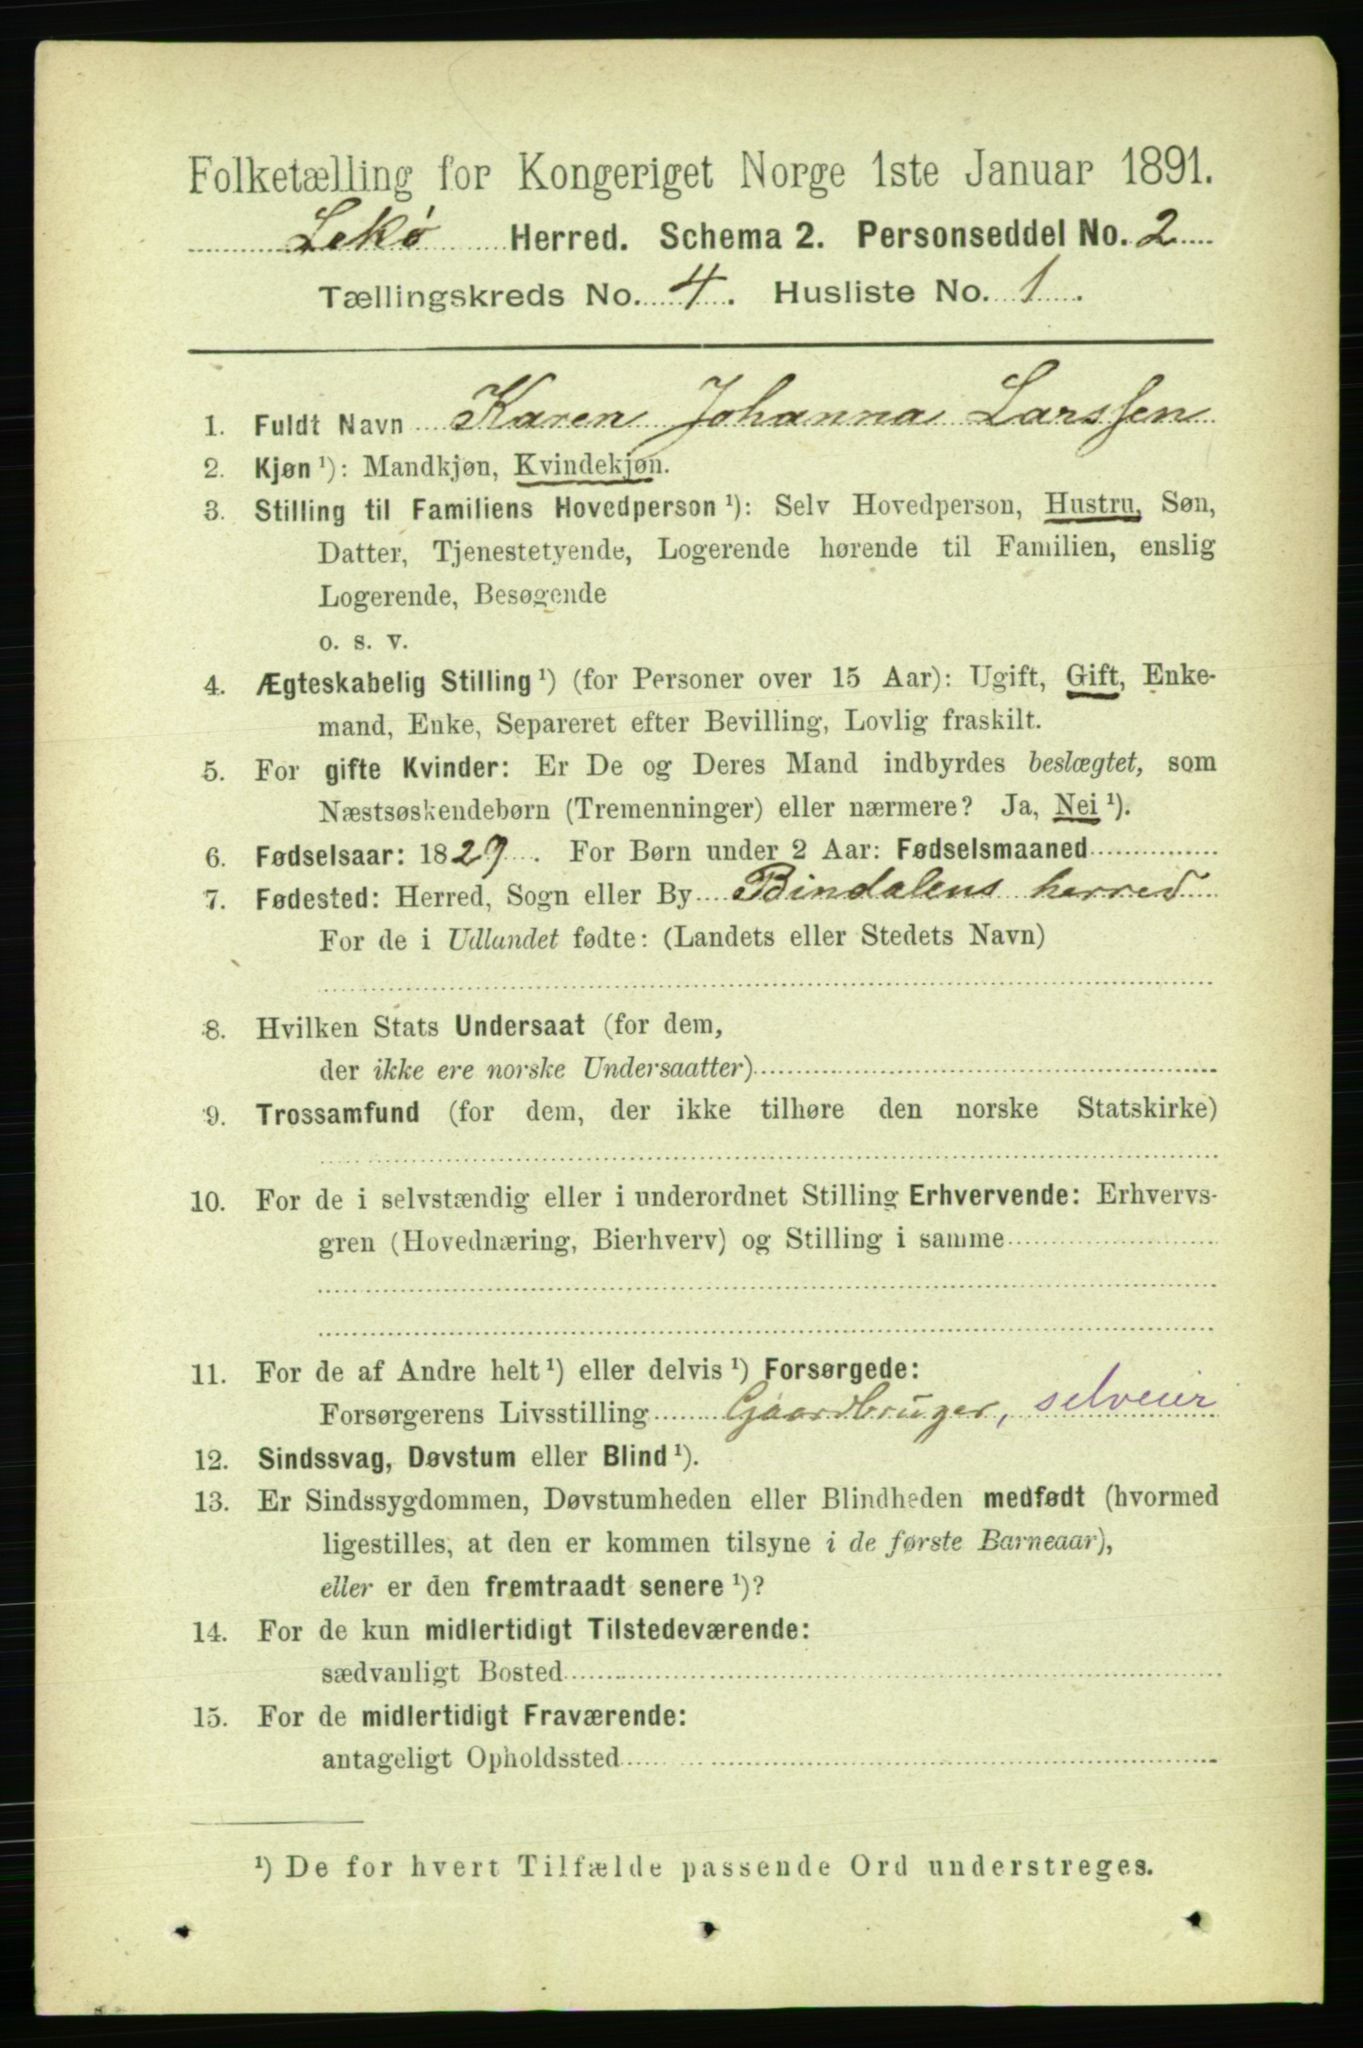 Folketælling for Kongeriget Norge 1ste Januar 1891.
Lekø Herred. Schema 2. Personseddel No. 2
Tællingskreds No. 4. Husliste No. 1.
1. Fuldt Navn Karen Johanna Larssen
2. Kjøn ¹): Mandkjøn, Kvindekjøn.
3. Stilling til Familiens Hovedperson ¹): Selv Hovedperson, Hustru, Søn,
Datter, Tjenestetyende, Logerende hørende til Familien, enslig
Logerende, Besøgende
o. s. v.
4. Ægteskabelig Stilling ¹) (for Personer over 15 Aar): Ugift, Gift, Enke-
mand, Enke, Separeret efter Bevilling, Lovlig fraskilt.
5. For gifte Kvinder: Er De og Deres Mand indbyrdes beslægtet, som
Næstsøskendebørn (Tremenninger) eller nærmere? Ja, Nei ¹).
6. Fødselsaar: 1829. For Børn under 2 Aar: Fødselsmaaned
7. Fødested: Herred, Sogn eller By Bindalens herred
For de i Udlandet fødte: (Landets eller Stedets Navn)
8. Hvilken Stats Undersaat (for dem,
der ikke ere norske Undersaatter)
9. Trossamfund (for dem, der ikke tilhøre den norske Statskirke)
10. For de i selvstændig eller i underordnet Stilling Erhvervende: Erhvervs-
gren (Hovednæring, Bierhverv) og Stilling i samme
11. For de af Andre helt ¹) eller delvis ¹) Forsørgede:
Forsørgerens Livsstilling Gaardbruger, selveier
12. Sindssvag, Døvstum eller Blind ¹).
13. Er Sindssygdommen, Døvstumheden eller Blindheden medfødt (hvormed
ligestilles, at den er kommen tilsyne i de første Barneaar),
eller er den fremtraadt senere ¹)?
14. For de kun midlertidigt Tilstedeværende:
sædvanligt Bosted
15. For de midlertidigt Fraværende:
antageligt Opholdssted
¹) De for hvert Tilfælde passende Ord understreges.